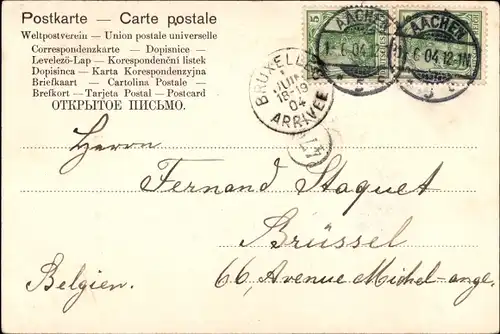 Postkarte — Carte postale
Weltpostverein — Union postale universelle
Correspondenzkarte — Dopisnice —
Levelező-Lap — Korespondenční lístek
Dopisnica — Karta Korespondencyjna
Briefkaart — Cartolina Postale —
Brefkort — Tarjeta Postal — Postcard
ОТКРЫТОЕ ПИСЬМО.
AACHEN
AACHEN
6 04 12-1N
BRUXELLES
JUIN
18-19
04
ARRIVEE
Herrn
Fernand Staquet
Brüssel
Belgien.
66, Avenue Michel-ange.